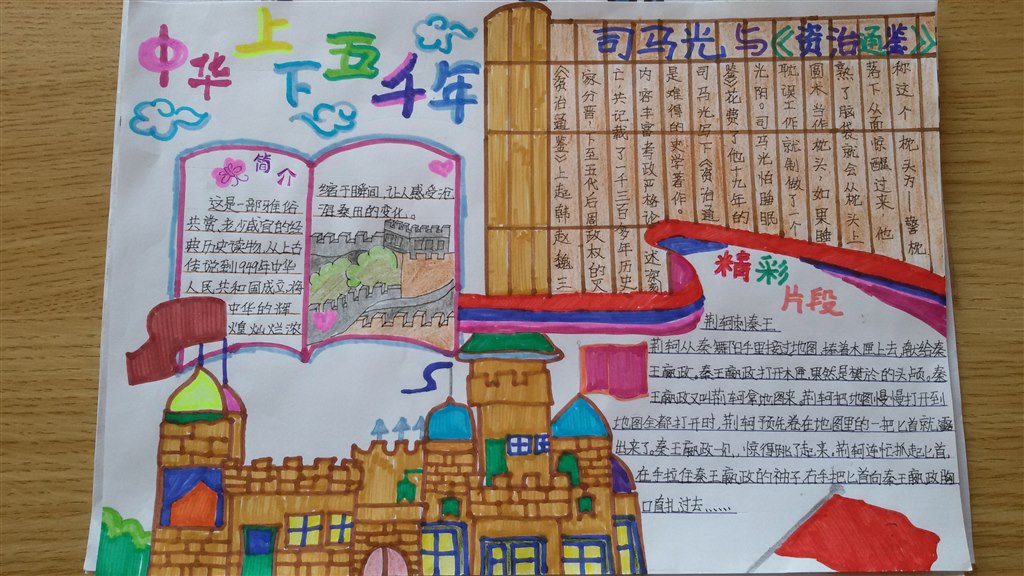 中华上下五千年
简介
这是一部雅俗
共赏,老少咸宜的经
典历史读物,从上古
传说到1949年中华
人民共和国成立,将
中华的辉
煌灿烂浓
缩于瞬间,让人感受沧
海桑田的变化。
司马光与《资治通鉴》
《资治通鉴》上起韩赵魏三
家分晋,下至五代后周政权的灭
亡,共记载了一千三百多年历史
内容丰富考政严格论述客观
是难得的史学著作。
司马光写下《资治通
鉴》花费了他十九年的
光阳。司马光怕睡眠
耽误工作,就制做了一个
圆木当作枕头,如果睡
熟了,脑袋就会从枕头上
落下,从而惊醒过来,他
称这个枕头为——警枕
精彩片段
荆轲刺秦王
荆轲从秦舞阳手里接过地图,捧着木匣上去,献给秦
王嬴政。秦王嬴政打开木匣,果然是樊於的头颅。秦
王嬴政又叫荆轲拿地图来,荆轲把地图慢慢打开,到
地图全都打开时,荆轲预先卷在地图里的一把匕首就露
出来了。秦王嬴政一见,惊得跳了起来,荆轲连忙扒起匕首,
左手拉住秦王嬴政的袖子,右手把匕首向秦王嬴政胸
口直扎过去……